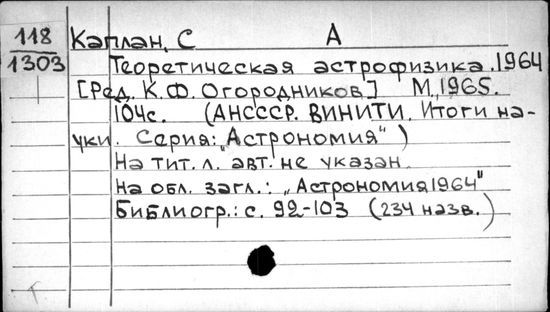 118 Каплан, С А
1303 Теоретическая астрофизика. 1964
[Ред. К.Ф. Огородников] М., 1965.
104с. (АНСССР. ВИНИТИ. Итоги на-
уки. Серия: „Астрономия")
На тит. л. авт. не указан.
На обл. загл.: „Астрономия 1964"
Библиогр.: с. 92-103 (234 назв.)